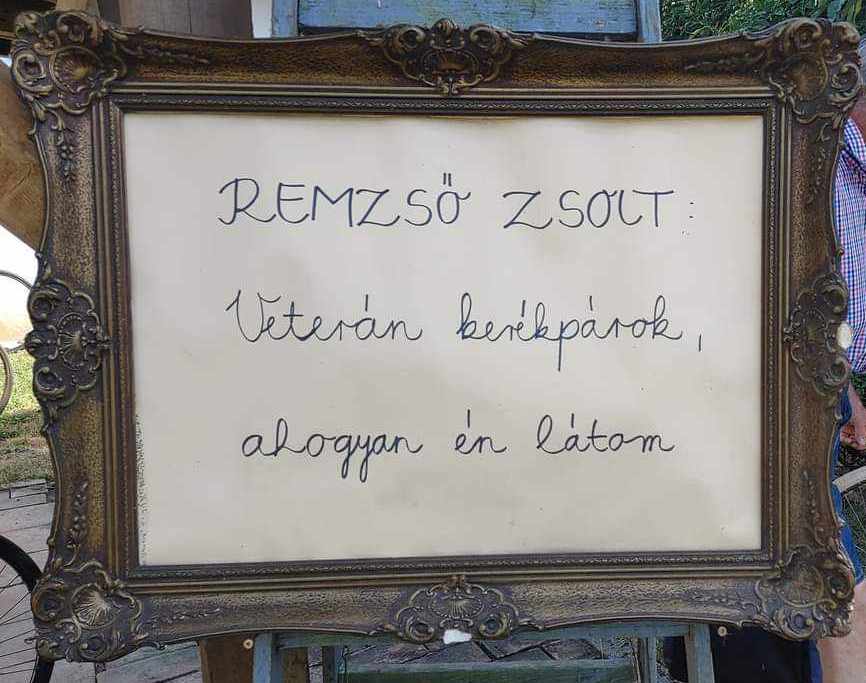 REMZSŐ ZSOLT:
Veterán kerékpárok,
ahogyan én látom